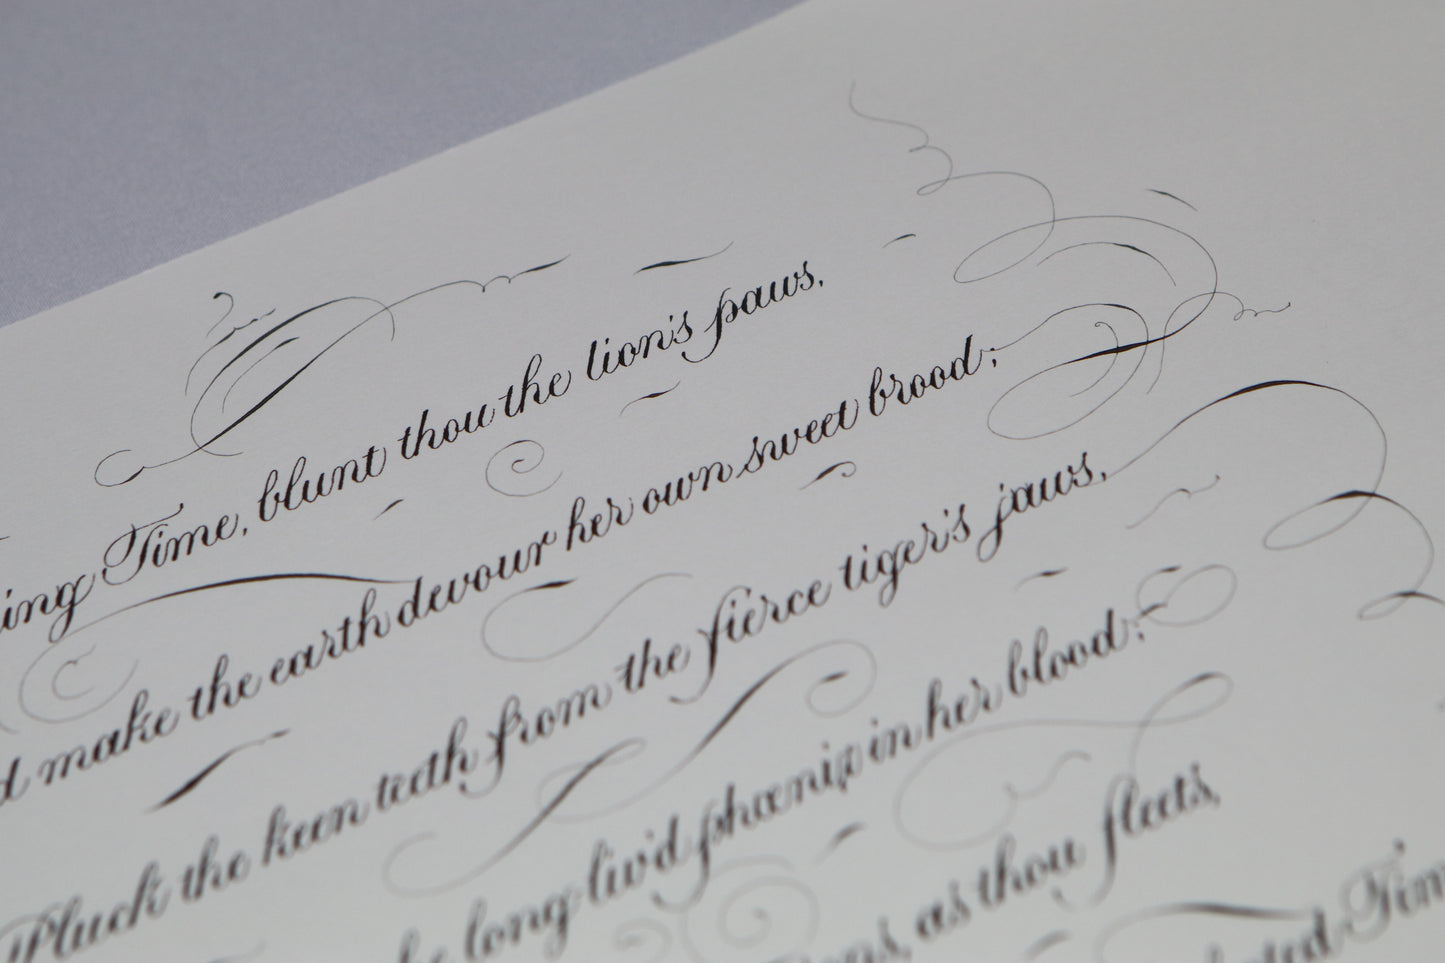 ing Time, blunt thou the lion's paws,
d make the earth devour her own sweet brood;
Pluck the keen teeth from the fierce tiger's jaws,
long-liv'd phœnix in her blood;
as thou fleets,